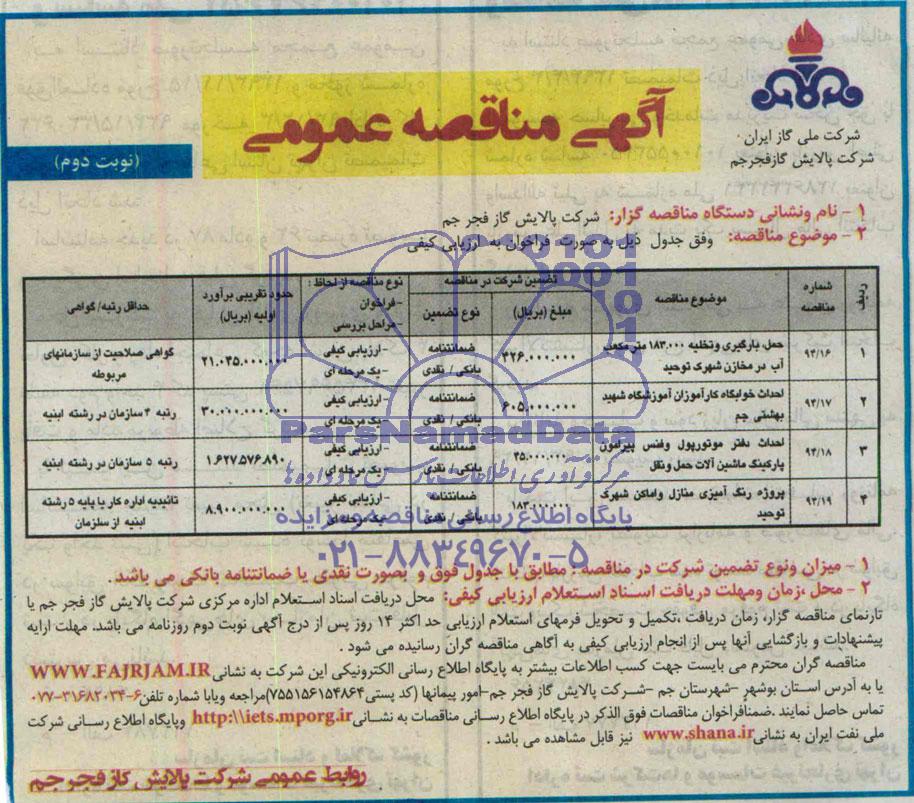 شرکت ملی گاز ایران
شرکت پالایش گازفجرجم
آگهی مناقصه عمومی
(نوبت دوم)
۱ - نام ونشانی دستگاه مناقصه گزار: شرکت پالایش گاز فجر جم
۲ - موضوع مناقصه: وفق جدول ذیل به صورت فراخوان به ارزیابی کیفی
ردیف | شماره مناقصه | موضوع مناقصه | تضمین شرکت در مناقصه | مبلغ (بریال) | نوع تضمین | نوع مناقصه از لحاظ : -فراخوان -مراحل بررسی | حدود تقریبی برآورد اولیه (بریال) | حداقل رتبه/ گواهی
۱ | ۹۴/۱۶ | حمل، بارگیری وتخلیه ۱۸۳.۰۰۰ متر مکعب آب در مخازن شهرک توحید | ۴۲۶.۰۰۰.۰۰۰ | ضمانتنامه بانکی/ نقدی | -ارزیابی کیفی -یک مرحله ای | ۲۱.۰۳۵.۰۰۰.۰۰۰ | گواهی صلاحیت از سازمانهای مربوطه
۲ | ۹۴/۱۷ | احداث خوابگاه کارآموزان آموزشگاه شهید بهشتی جم | ۶۰۵.۰۰۰.۰۰۰ | ضمانتنامه بانکی/ نقدی | -ارزیابی کیفی -یک مرحله ای | ۳۰.۰۱۰.۰۰۰.۰۰۰ | رتبه ۴ سازمان در رشته ابنیه
۳ | ۹۴/۱۸ | احداث دفتر موتورپول وفنس پیرامون پارکینگ ماشین آلات حمل ونقل | ۳۵.۰۰۰.۰۰۰ | ضمانتنامه بانکی/ نقدی | -ارزیابی کیفی -یک مرحله ای | ۱.۶۲۷.۵۷۶.۸۹۰ | رتبه ۵ سازمان در رشته ابنیه
۴ | ۹۴/۱۹ | پروژه رنگ آمیزی منازل واماکن شهرک توحید | ۱۸۳.۰۰۰.۰۰۰ | ضمانتنامه بانکی/ نقدی | -ارزیابی کیفی -یک مرحله ای | ۸.۹۰۰.۰۰۰.۰۰۰ | تائیدیه اداره کار یا پایه ۵ رشته ابنیه از سازمان
ParsNamadData
پایگاه اطلاع رسانی مناقصه و مزایده
۰۲۱-۸۸۳۴۹۶۷۰-۵
۱ - میزان ونوع تضمین شرکت در مناقصه : مطابق با جدول فوق و بصورت نقدی یا ضمانتنامه بانکی می باشد .
۲ - محل ،زمان ومهلت دریافت اسـناد اسـتعلام ارزیابی کیفی: محل دریافت اسناد استعلام اداره مرکزی شرکت پالایش گاز فجر جم یا
تارنمای مناقصه گزار، زمان دریافت ،تکمیل و تحویل فرمهای استعلام ارزیابی حد اکثر ۱۴ روز پس از درج آگهی نوبت دوم روزنامه می باشد. مهلت ارایه
پیشنهادات و بازگشایی آنها پس از انجام ارزیابی کیفی به آگاهی مناقصه گران رسانیده می شود .
مناقصه گران محترم می بایست جهت کسب اطلاعات بیشتر به پایگاه اطلاع رسانی الکترونیکی این شرکت به نشانی WWW.FAJRJAM.IR
یا به آدرس استان بوشهر –شهرستان جم –شرکت پالایش گاز فجر جم-امور پیمانها (کد پستی۷۵۵۱۵۶۱۵۴۸۶۴)مراجعه ویابا شماره تلفن۶-۰۷۷-۳۱۶۸۲۰۳۴
تماس حاصل نمایند .ضمنافراخوان مناقصات فوق الذکر در پایگاه اطلاع رسانی مناقصات به نشانی http:\\iets.mporg.ir وپایگاه اطلاع رسانی شرکت
ملی نفت ایران به نشانی www.shana.ir نیز قابل مشاهده می باشد .
روابط عمومی شرکت پالایش گاز فجر جم